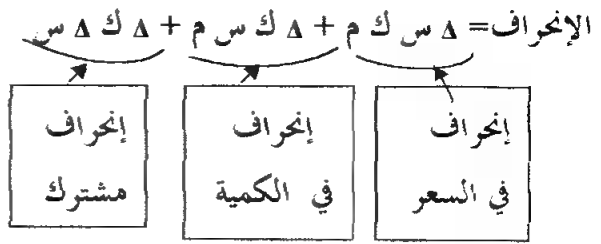 الإنحراف= Δ س ك م + Δ ك س م + Δ ك Δ س
إنحراف في السعر
إنحراف في الكمية
إنحراف مشترك